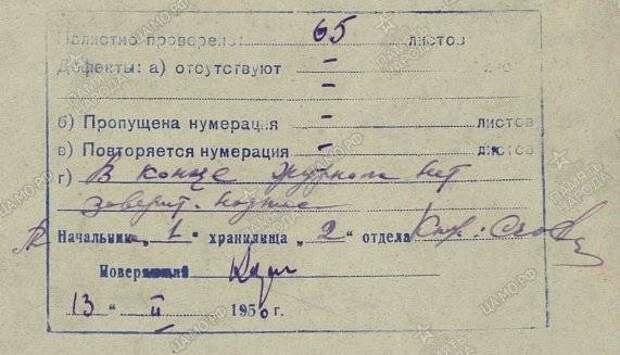 Полистно проверено: 65 листов
Дефекты: а) отсутствуют -
-
б) Пропущена нумерация - листов
в) Повторяется нумерация - листов
г) В конце журнала нет
заверит. подписи
Начальник „1" хранилища „2" отдела
Поверяющий
13 " II 1950 г.